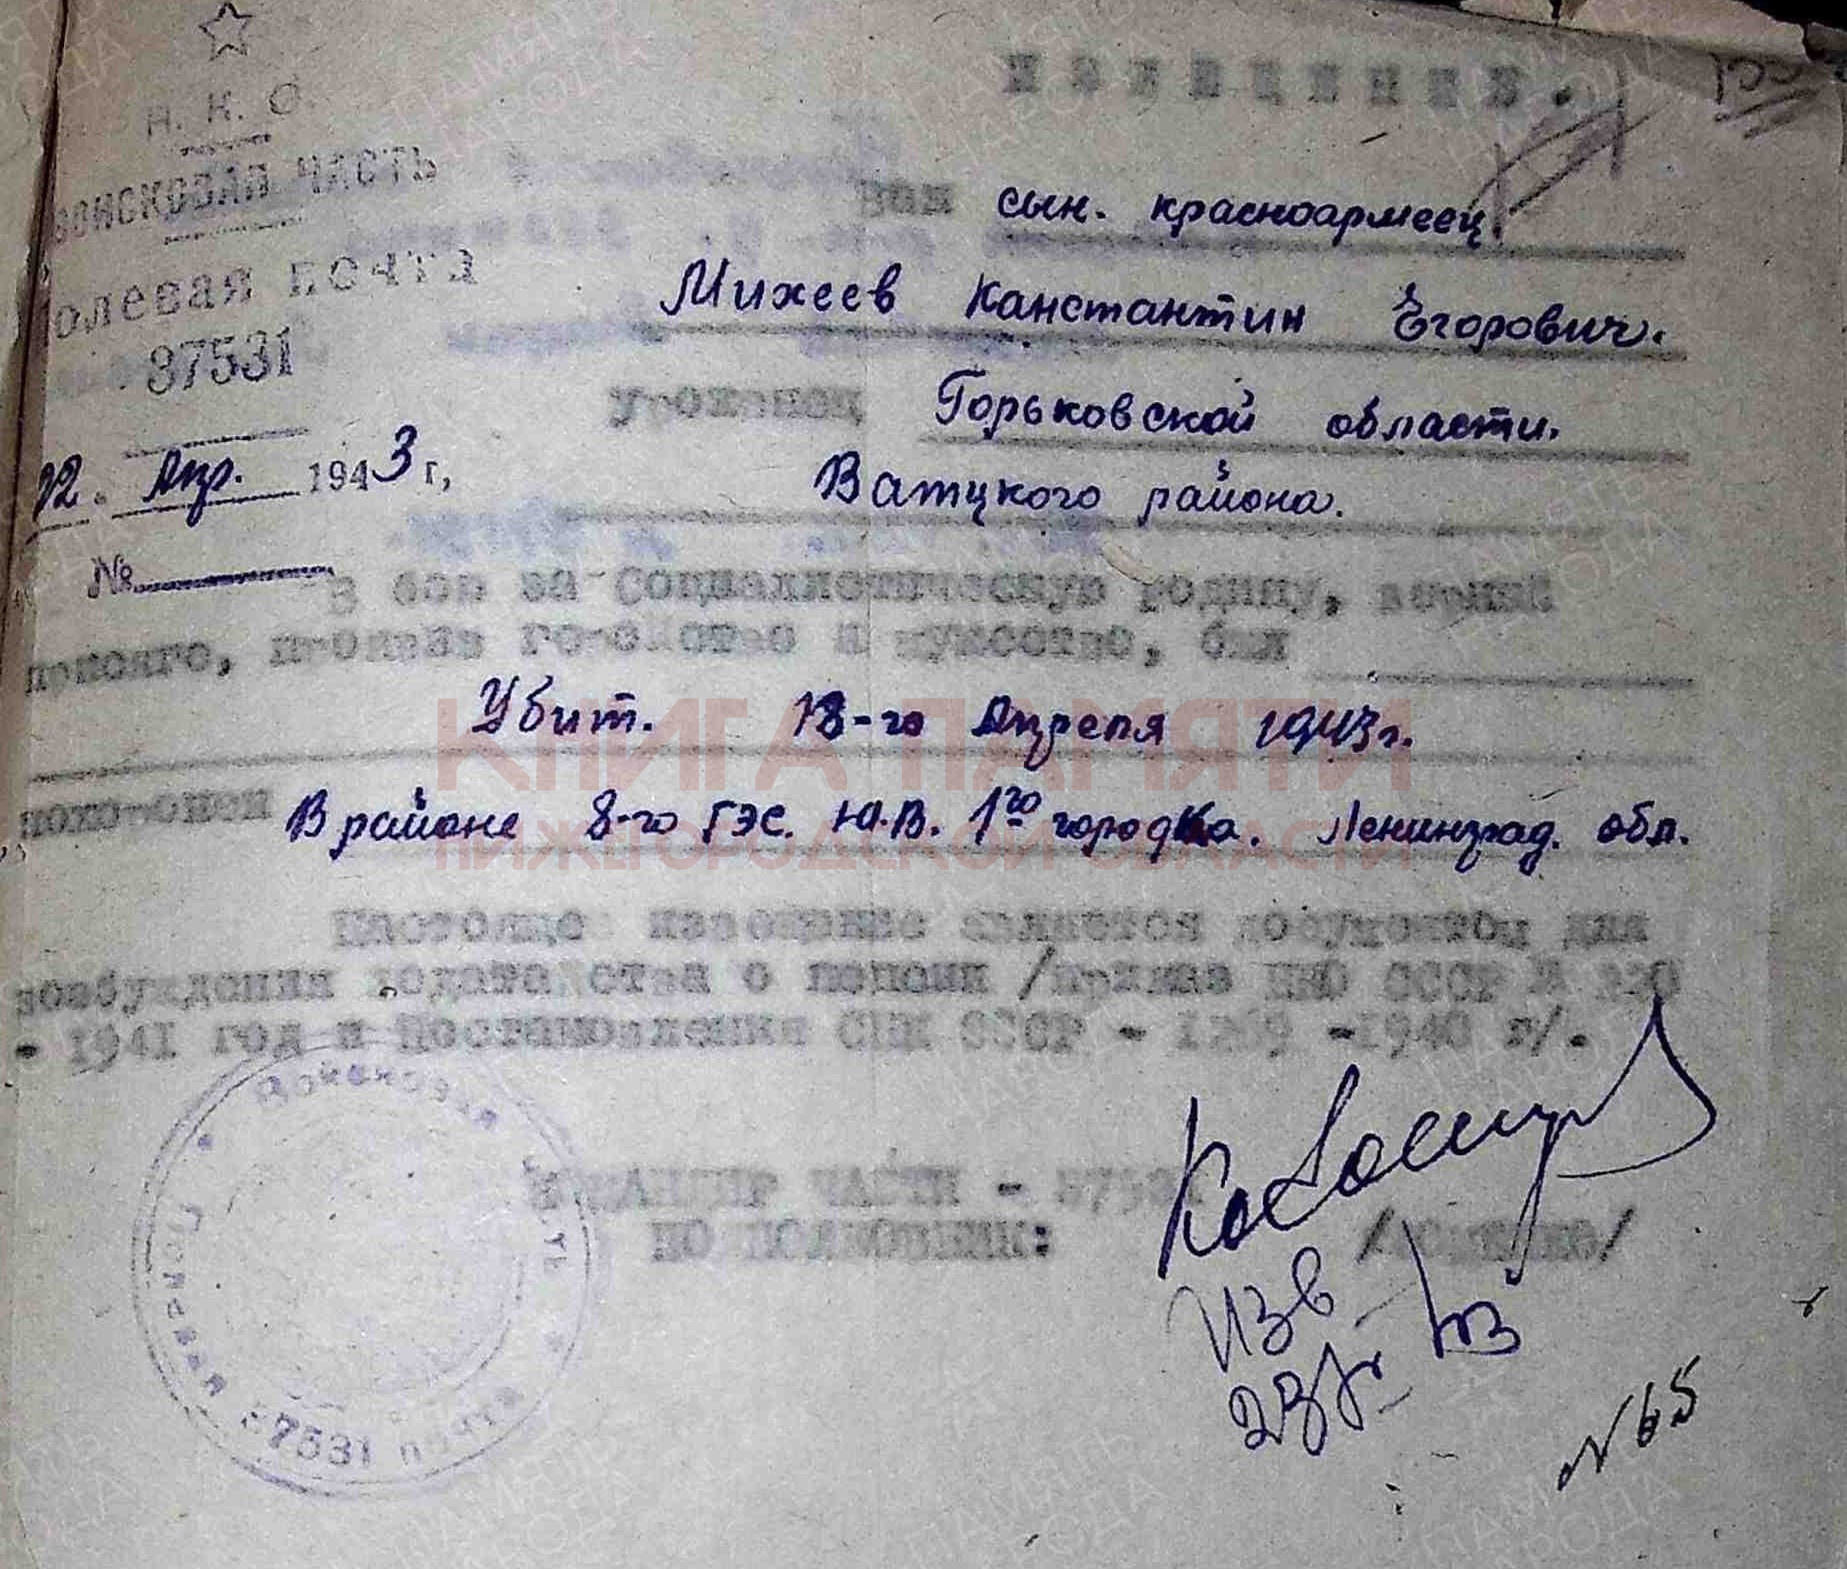 Н. К. О.
ВОИСКОВАЯ ЧАСТЬ
полевая почта
37531
22. Апр. 1943 г,
№
ИЗВЕЩЕНИЕ.
Ваш сын. красноармеец
Михеев Канстантин Егорович.
Уроженец Горьковской области.
Ватцкого района.
В бою за Социалистическую родину, верный
присяге, проявив геройство и мужество, был
Убит. 18-го Апреля 1943г.
похоронен В районе 8-го ГЭС. Ю.В. 1го городка. Ленинград. обл.
Настояще извещение является документом для
возбуждения ходатайства о пенсии /приказ НКО СССР №
- 1941 год и Постановления СНК СССР - 1269 -1940 г/.
КОМАНДИР ЧАСТИ - 37531
ПОДПОЛКОВНИК:
Изв
N 65
Войсковая часть
Полевая почта 37531
КНИГА ПАМЯТИ
НИЖЕГОРОДСКОЙ ОБЛАСТИ
ПАМЯТЬ НАРОДА